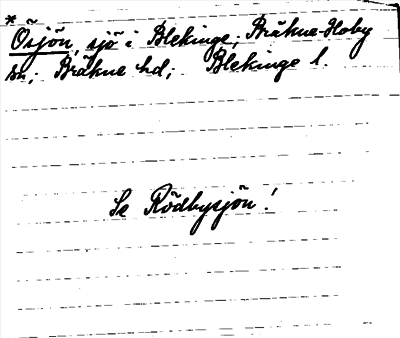 * Ösjön, sjö i Blekinge, Bräkne-Hoby
sn; Bräkne hd; Blekinge l.
Se Rödbysjön!